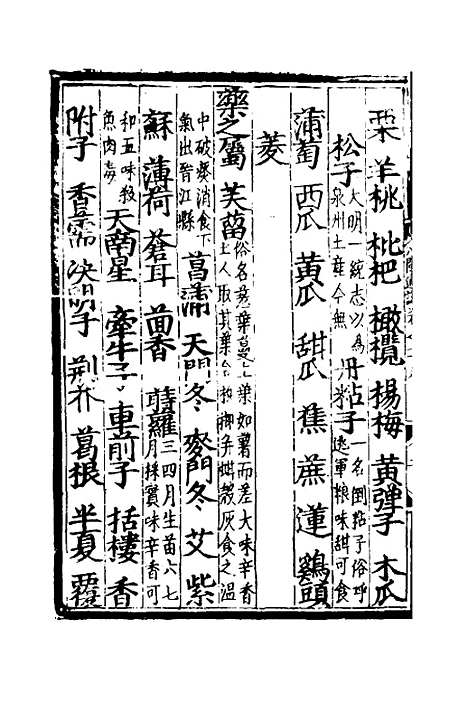 栗 羊桃 枇杷 橄欖 楊梅 黄彈子 木瓜
松子 大明一統志以為泉州土産今無 丹粘子 一名倒粘子俗呼逃軍粮味甜可食
蒲萄 西瓜 黄瓜 甜瓜 蕉 蔗 蓮 鷄頭
菱
藥之屬 芙蒥 俗名蔞葉蔓生葉如薯而差大味辛香土人取其葉合檳榔牙蠣殼灰食之温
中破痰消食下氣出晉江縣 菖蒲 天門冬 麥門冬 艾 紫
蘇 薄荷 蒼耳 茴香 蒔蘿 三四月生苗六七月採實味辛香可
和五味殺魚肉毒 天南星 牽牛子 車前子 括樓 香
附子 香薷 決明子 荆芥 葛根 半夏 覆